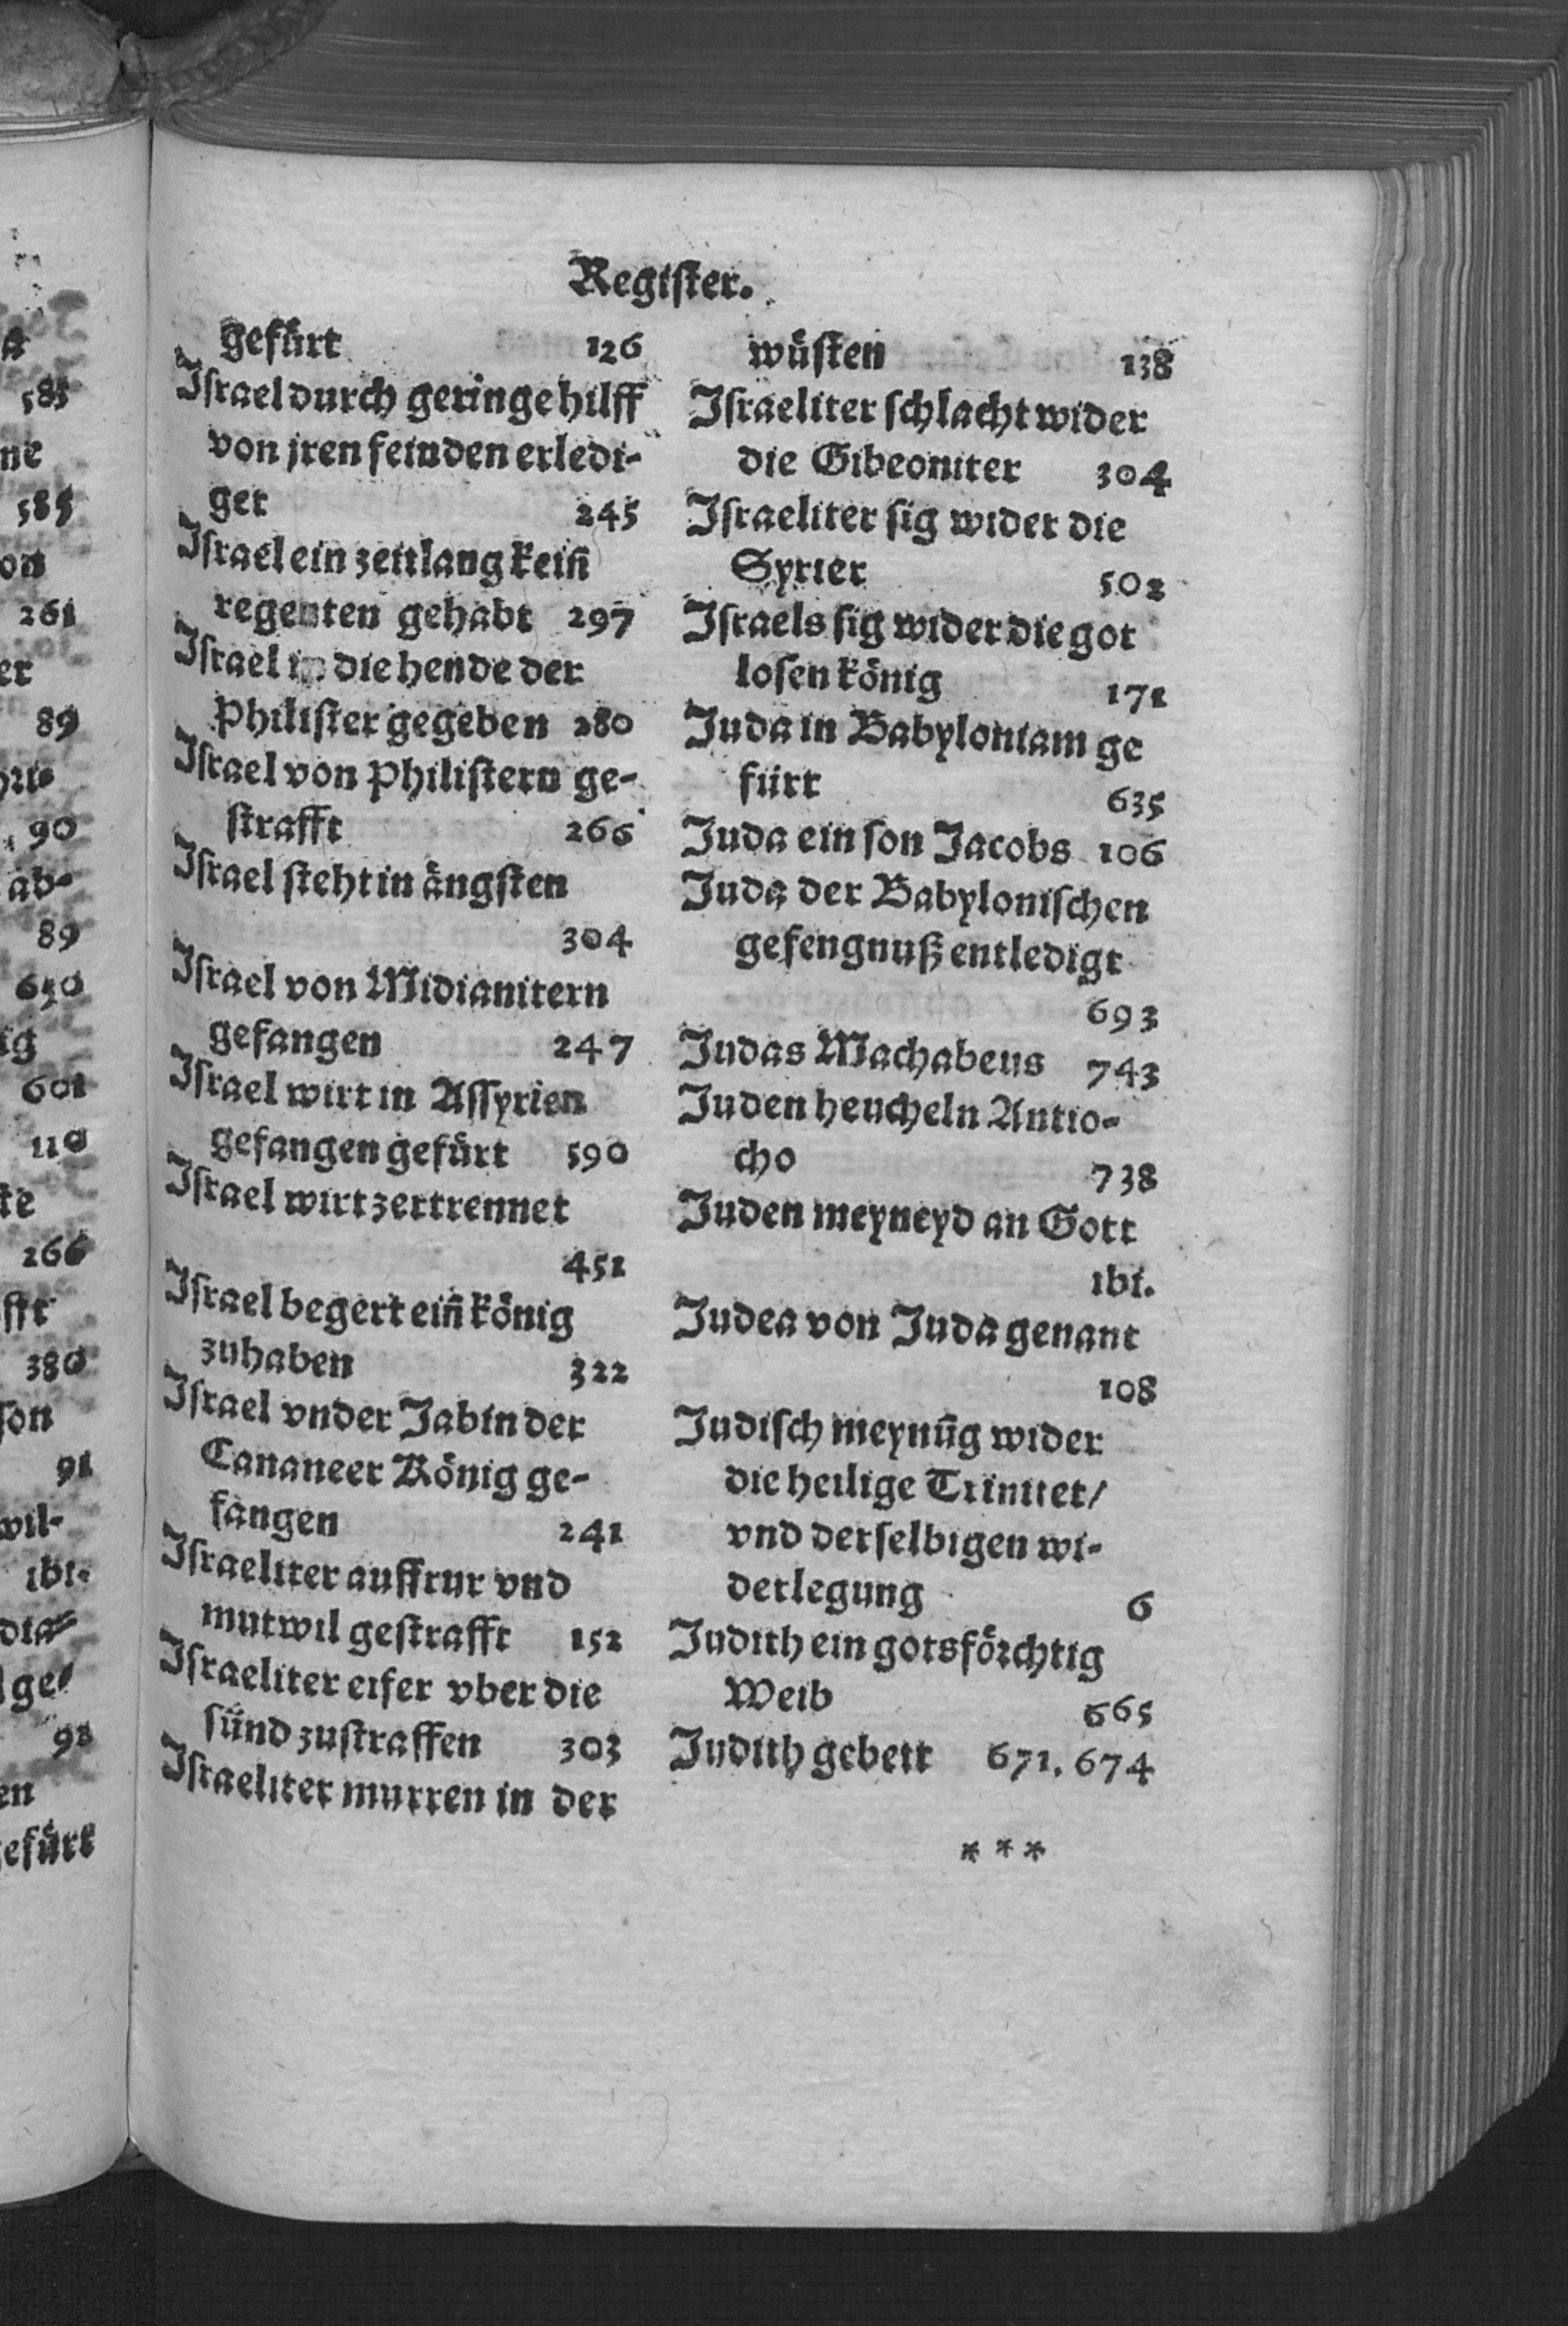 Register.
gefürt 126
Israel durch geringe hilff
von jren feinden erledi-
get 245
Israel ein zeitlang keiñ
regenten gehabt 297
Israel in die hende der
Philister gegeben 280
Israel von Philistern ge-
strafft 266
Israel steht in ängsten
304
Israel von Midianitern
gefangen 247
Israel wirt in Assyrien
gefangen gefürt 590
Israel wirt zertrennet
451
Israel begert eiñ könig
zuhaben 322
Israel vnder Jabin der
Cananeer König ge-
fangen 241
Israeliter auffrur vnd
mutwil gestrafft 152
Israeliter eifer vber die
sünd zustraffen 303
Israeliter murren in der
wüsten 138
Israeliter schlacht wider
die Gibeoniter 304
Israeliter sig wider die
Syrier 502
Israels sig wider die got
losen könig 171
Juda in Babyloniam ge
fürt 635
Juda ein son Jacobs 106
Juda der Babylonischen
gefengnuß entledigt
693
Judas Machabeus 743
Juden heucheln Antio-
cho 738
Juden meyneyd an Gott
ibi.
Judea von Juda genant
108
Judisch meynũg wider
die heilige Trinitet/
vnd derselbigen wi-
derlegung 6
Judith ein gotsförchtig
Weib 665
Judith gebett 671. 674
* * *